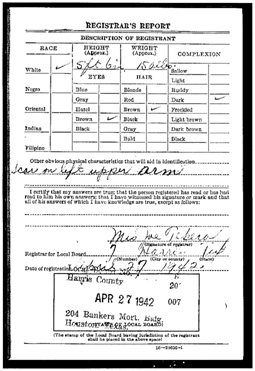 REGISTRAR'S REPORT
DESCRIPTION OF REGISTRANT
RACE HEIGHT (Approx.) WEIGHT (Approx.) COMPLEXION
White ✓ 5 ft 6 in Sallow
EYES HAIR Light
Negro Blue Blonde Ruddy
Gray Red Dark ✓
Oriental Hazel Brown ✓ Freckled
Brown ✓ Black Light brown
Indian Black Gray Dark brown
Bald Black
Filipino
Other obvious physical characteristics that will aid in identification
Scar on left upper arm
I certify that my answers are true; that the person registered has read or has had
read to him his own answers; that I have witnessed his signature or mark and that
all of his answers of which I have knowledge are true, except as follows:
Miss Joe
(Signature of registrar)
Registrar for Local Board 7 Harris Tex
(Number) (City or county) (State)
Date of registration 27 1942
Harris County
APR 27 1942 007
204 Bankers Mort. Bldg.
Houston, Texas
(STAMP OF LOCAL BOARD)
(The stamp of the Local Board having jurisdiction of the registrant
shall be placed in the above space)